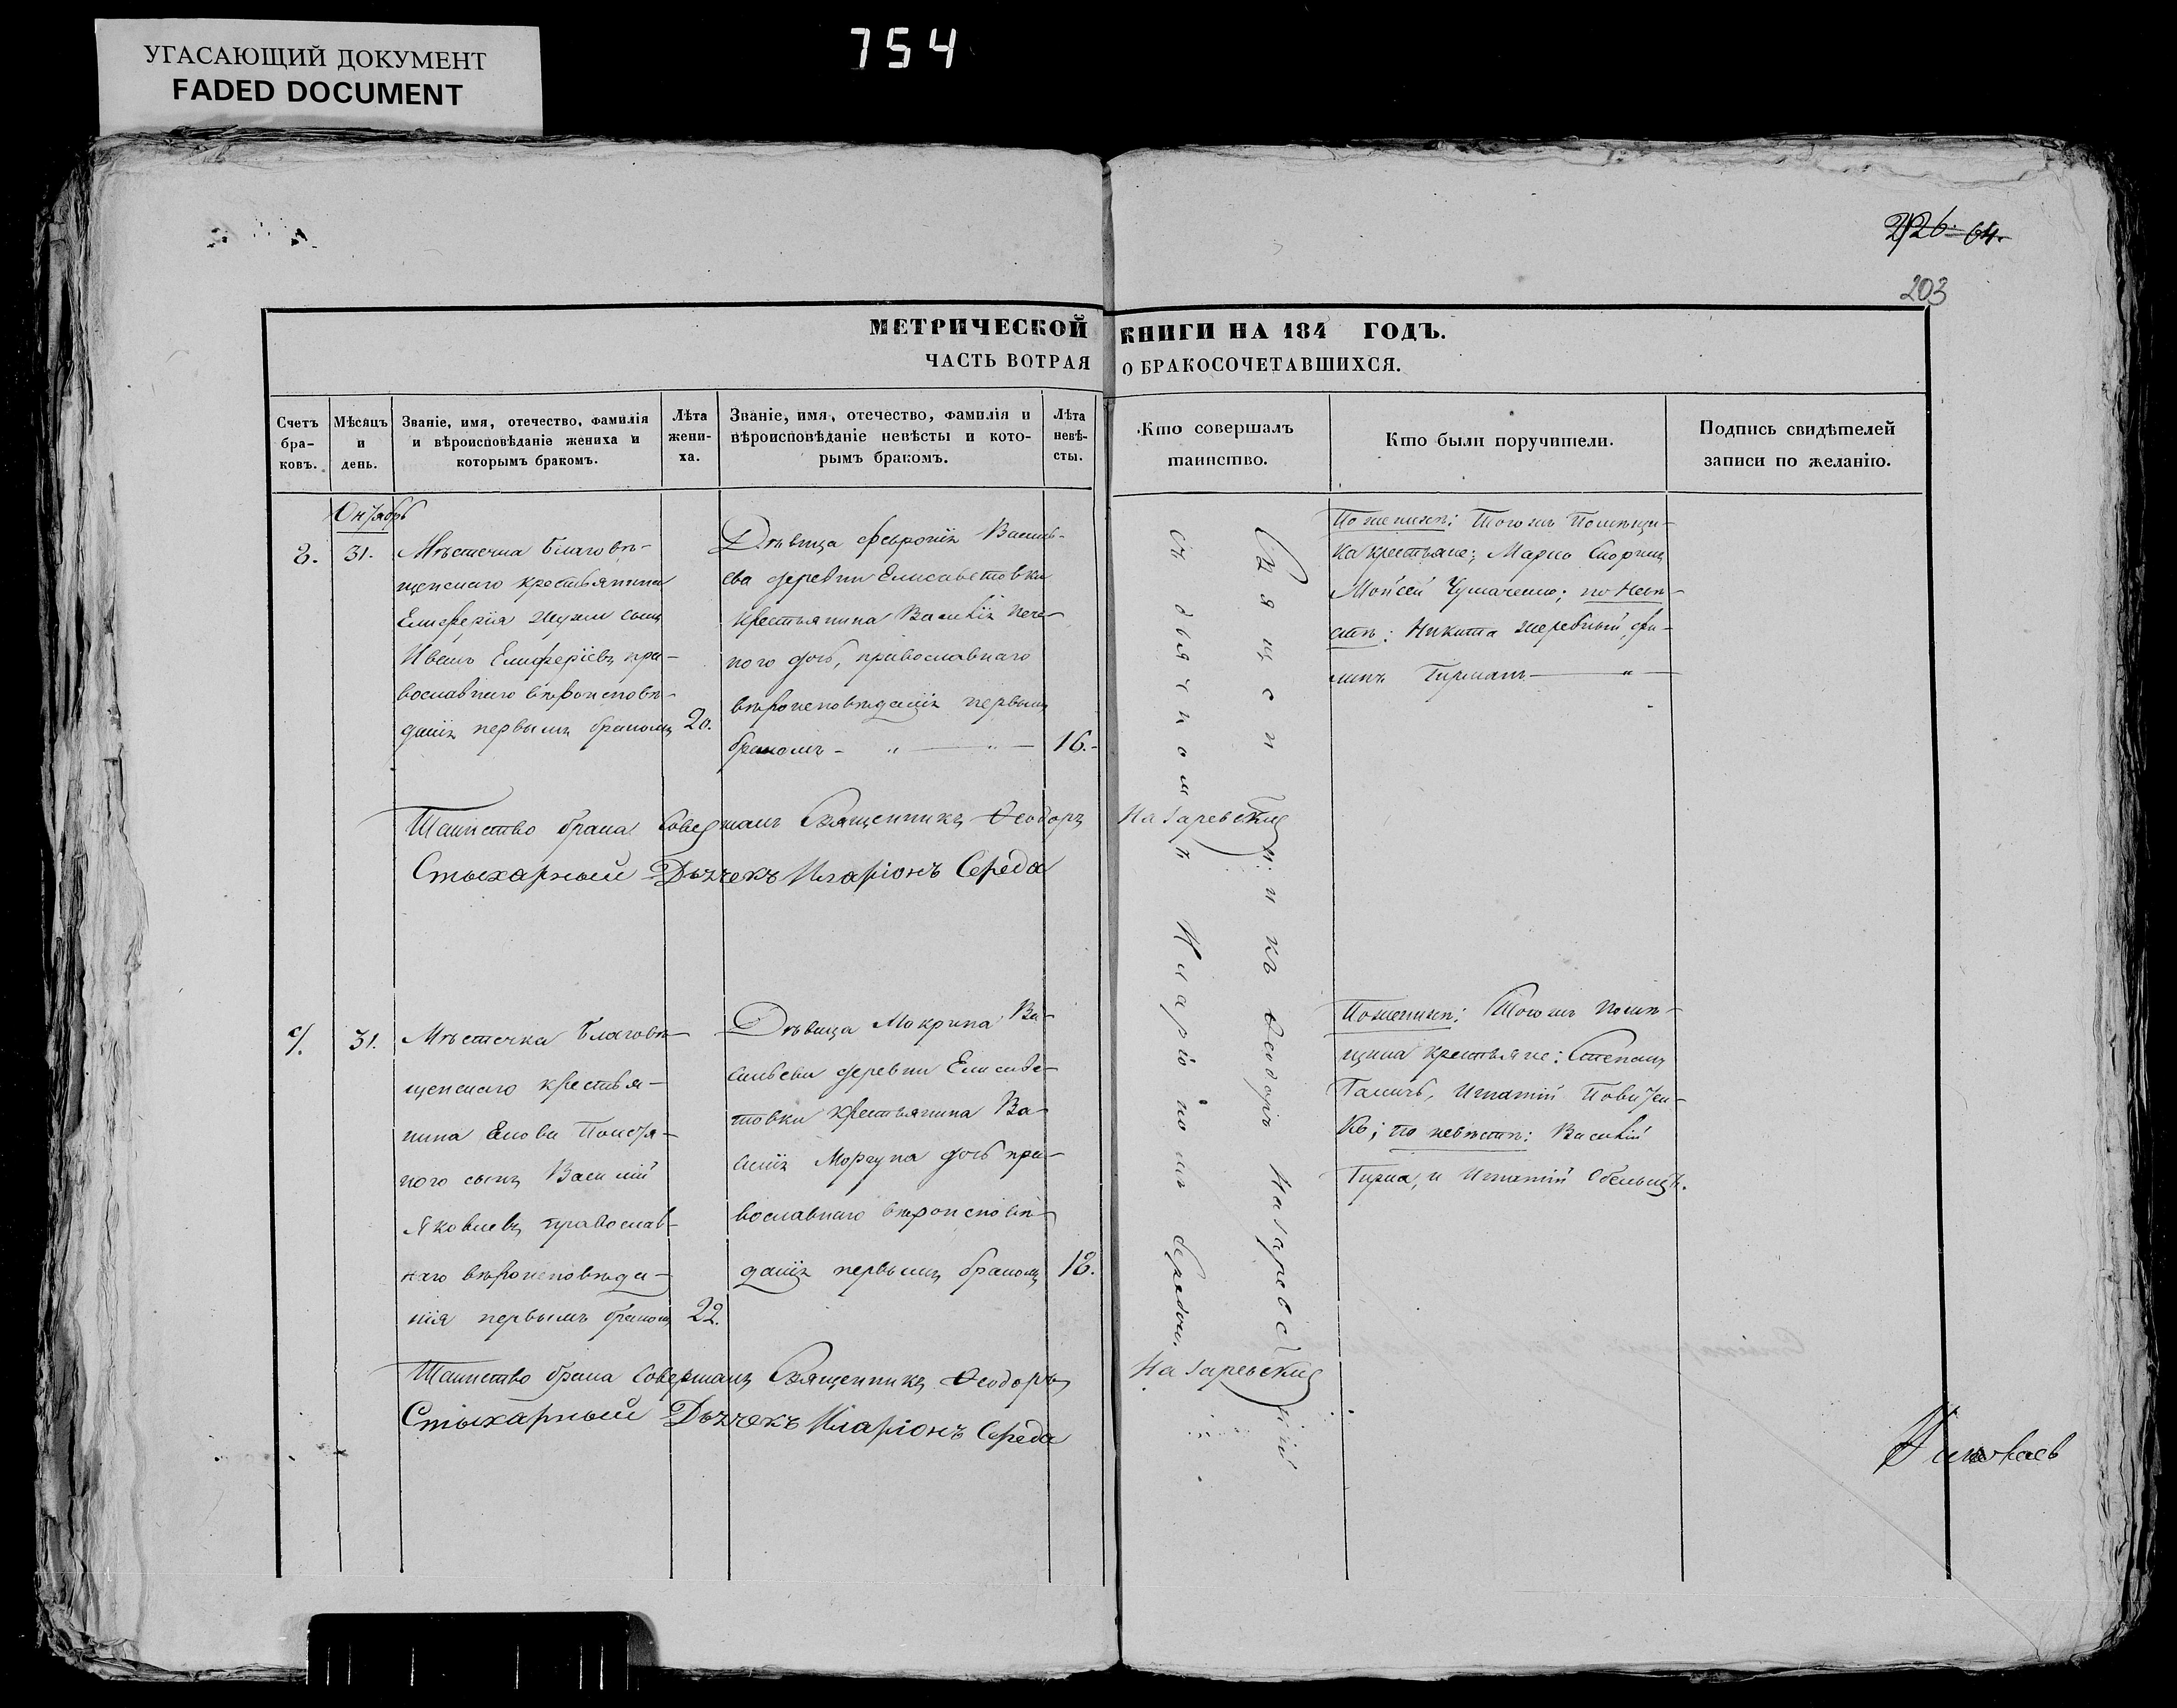 УГАСАЮЩИЙ ДОКУМЕНТ
FADED DOCUMENT
754
226. 64.
203
МЕТРИЧЕСКОЙ КНИГИ НА 184 ГОДЪ.
ЧАСТЬ ВОТРАЯ О БРАКОСОЧЕТАВШИХСЯ.
Счетъ
бра-
ковъ.
Мѣсяцъ
и
день.
Званіе, имя, отечество, фамилія
и вѣроисповѣданіе жениха и
которымъ бракомъ.
Лѣта
жени-
ха.
Званіе, имя, отечество, фамилія и
вѣроисповѣданіе невѣсты и кото-
рымъ бракомъ.
Лѣта
невѣ-
сты.
Кто совершалъ
таинство.
Кто были поручители.
Подпись свидѣтелей
записи по желанію.
Октябрь
31.
Мѣстечка Благовѣ-
щенскаго крестьянина
Елиферія сынъ
Иванъ Елиферіевъ пра-
вославнаго вѣроисповѣ-
данія первымъ бракомъ
20.
Дѣвица Февронія Василь-
ева деревни Елисаветовки
крестьянина Василія Пече-
ного дочь, православнаго
вѣроисповѣданія первымъ
бракомъ - „ — „ —
16.-
Священникъ Ѳеодоръ Назаревскій
съ дьячкомъ Иларіономъ Середою.
По женихѣ: Тогожъ Помѣщи-
ка крестьяне: Марко
Мойсей Чумаченко; по Невѣ-
стѣ: Никита Жеребный, Фи-
липъ Гирманъ — „ —
Таинство брака Совершалъ Священникъ Ѳеодоръ Назаревскій
Стихарный Дьячекъ Иларіонъ Середа
31.
Мѣстечка Благовѣ-
щенскаго крестья-
нина
ного сынъ Василій
Яковлевъ православ-
наго вѣроисповѣда-
нія первымъ бракомъ
22.
Дѣвица Мокрина Ва-
сильева деревни Елисаве-
товки крестьянина Ва-
силія Моргуна дочь пра-
вославнаго вѣроисповѣ-
данія первымъ бракомъ
18.
По женихѣ: Тогожъ помѣ-
щика крестьяне: Степанъ
Галичъ, Игнатій
по невѣстѣ: Василій
Гирма, и Игнатій
Таинство брака Совершалъ Священникъ Ѳеодоръ Назаревскій
Стихарный Дьячекъ Иларіонъ Середа